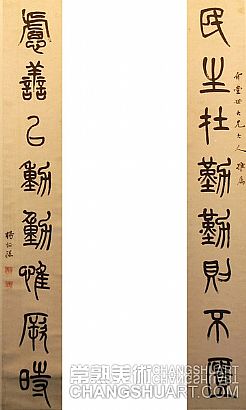 民生在勤勤則不匱
慮善以動動惟厥時
楊沂孫
常熟美術 CHANGSHUART
CHANGSHUART.COM